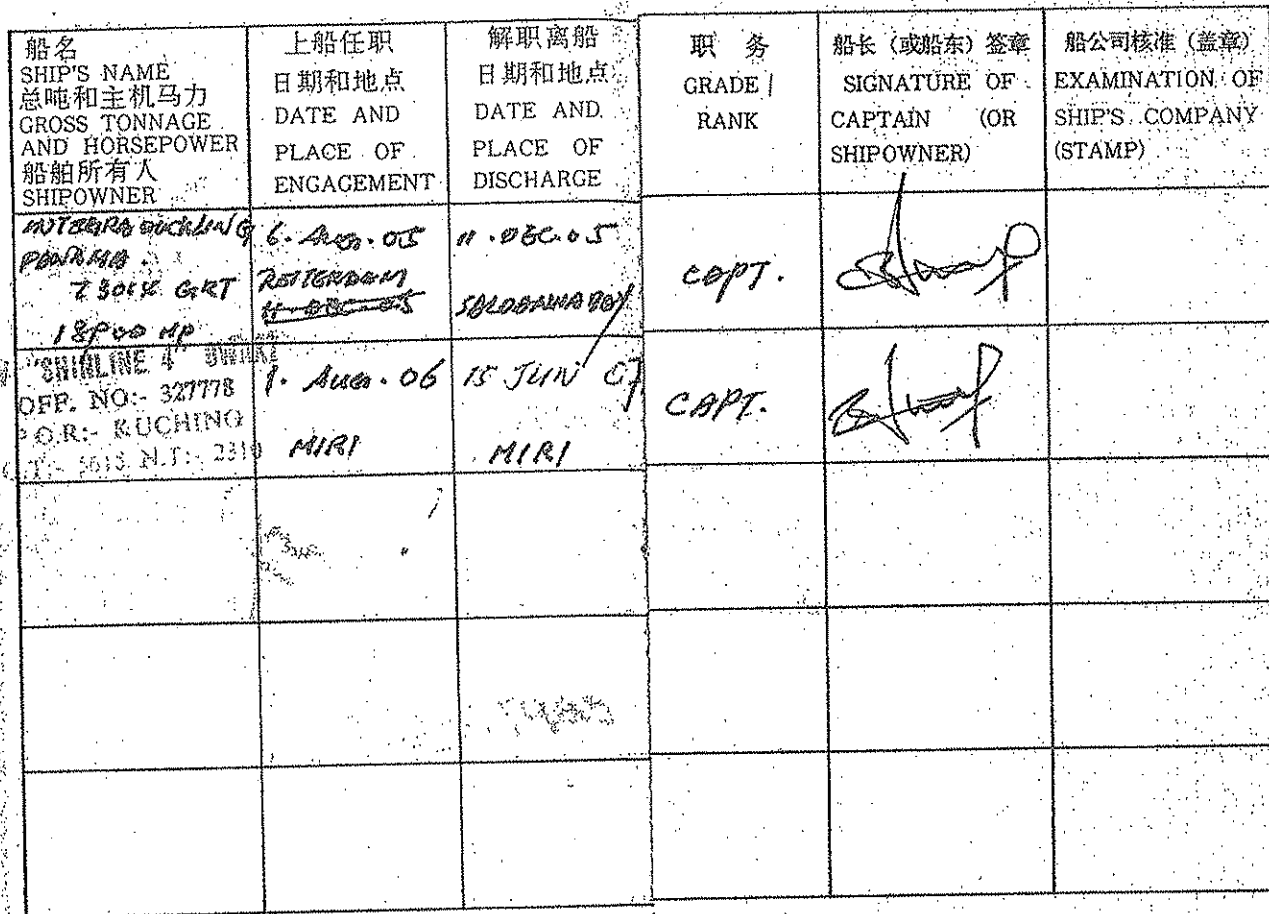 船名
SHIP'S NAME
总吨和主机马力
GROSS TONNAGE
AND HORSEPOWER
船舶所有人
SHIPOWNER
上船任职
日期和地点
DATE AND
PLACE OF
ENGAGEMENT
解职离船
日期和地点
DATE AND
PLACE OF
DISCHARGE
职 务
GRADE /
RANK
船长（或船东）签章
SIGNATURE OF
CAPTAIN (OR
SHIPOWNER)
船公司核准（盖章）
EXAMINATION OF
SHIP'S COMPANY
(STAMP)
DUCKLING
PANAMA.
GRT
HP
6. Aug. 05
ROTTERDAM
11-DEC-05
11. DEC. 05
CAPT.
"SHINLINE 4"
OFF. NO:- 327778
P.O.R:- KUCHING
G.T:- 5613 N.T:- 2310
1. Aug. 06
MIRI
15 JUN 07
MIRI
CAPT.